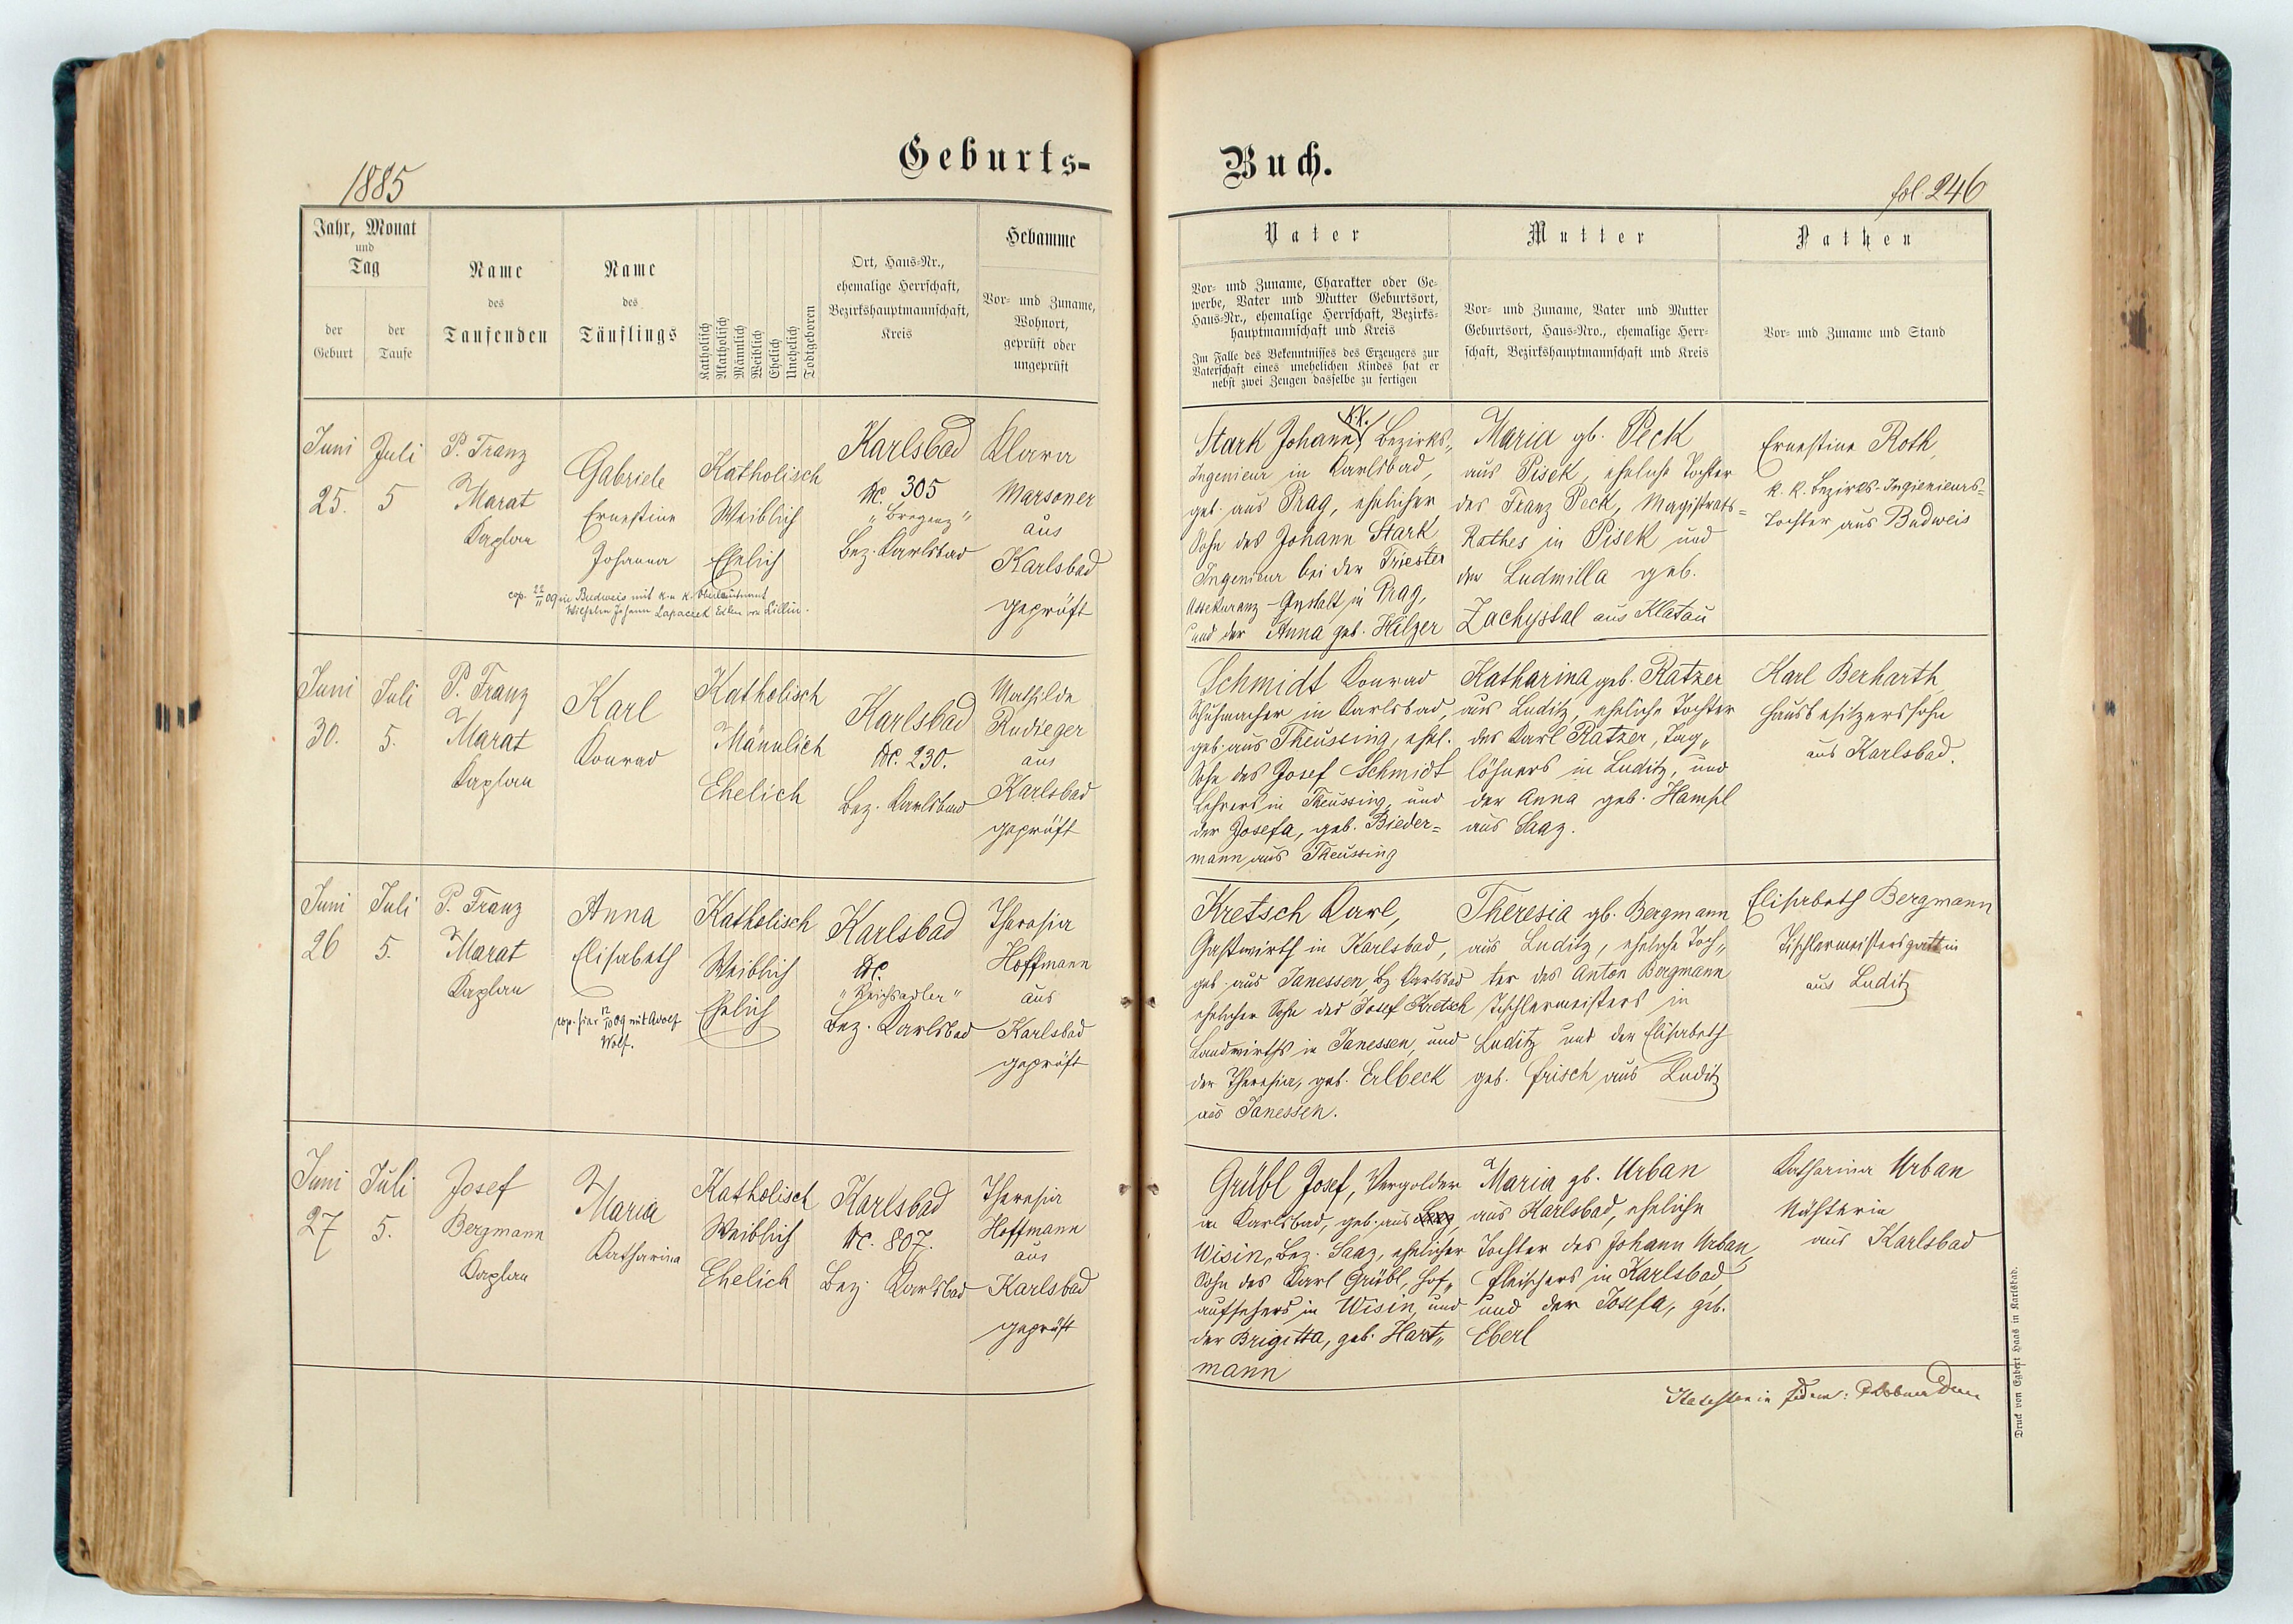 1885
Geburts-
Jahr, Monat
und
Tag
der
Geburt
der
Taufe
Name
des
Taufenden
Name
des
Täuflings
Katholisch
Akatholisch
Männlich
Weiblich
Ehelich
Unehelich
Todtgeboren
Ort, Haus-Nr.,
ehemalige Herrschaft,
Bezirkshauptmannschaft,
Kreis
Hebamme
Vor- und Zuname,
Wohnort,
geprüft oder
ungeprüft
Juni
25.
Juli
5
P. Franz
Marat
Kaplan
Gabriele
Ernestine
Johanna
cop. 22/11 09 in Budweis mit k. u. k. Oberleutnant
Wilhelm Johann Edlen von
Katholisch
Weiblich
Ehelich
Karlsbad
Nc. 305
"Bregenz"
Bez. Karlsbad
Klara
Marsoner
aus
Karlsbad
geprüft
Juni
30.
Juli
5.
P. Franz
Marat
Kaplan
Karl
Konrad
Katholisch
Männlich
Ehelich
Karlsbad
Nc. 230.
Bez. Karlsbad
Mathilde
Rudieger
aus
Karlsbad
geprüft
Juni
26
Juli
5.
P. Franz
Marat
Kaplan
Anna
Elisabeth
cop. hier 12/10 09 mit Adolf
Wolf.
Katholisch
Weiblich
Ehelich
Karlsbad
Nc.
"Reichsadler"
Bez. Karlsbad
Theresia
Hoffmann
aus
Karlsbad
geprüft
Juni
27
Juli
5.
Josef
Bergmann
Kaplan
Maria
Katharina
Katholisch
Weiblich
Ehelich
Karlsbad
Nc. 807.
Bez. Karlsbad
Theresia
Hoffmann
aus
Karlsbad
geprüft
Buch.
fol. 246
Vater
Vor- und Zuname, Charakter oder Ge-
werbe, Vater und Mutter Geburtsort,
Haus-Nr., ehemalige Herrschaft, Bezirks-
hauptmannschaft und Kreis
Im Falle des Bekenntnisses des Erzeugers zur
Vaterschaft eines unehelichen Kindes hat er
nebst zwei Zeugen dasselbe zu fertigen
Mutter
Vor- und Zuname, Vater und Mutter
Geburtsort, Haus-Nro., ehemalige Herr-
schaft, Bezirkshauptmannschaft und Kreis
Pathen
Vor- und Zuname und Stand
k.k.
Stark Johann, Bezirks„
Ingenieur in Karlsbad,
geb. aus Prag, ehelicher
Sohn des Johann Stark
Ingenieur bei der Triester
Assekuranz-Anstalt in Prag,
und der Anna geb. Hilzer
Maria gb. Peck
aus Pisek, eheliche Tochter
des Franz Peck, Magistrats=
Rathes in Pisek und
der Ludmilla geb.
Zachystal aus Klatau
Ernestine Roth,
k. k. Bezirks-Ingenieurs=
Tochter aus Budweis
Schmidt Konrad
Schuhmacher in Karlsbad,
geb. aus Theussing, ehel.
Sohn des Josef Schmidt
Lehrers in Theussing, und
der Josefa, geb. Bieder=
mann aus Theussing
Katharina geb. Ratzer
aus Luditz, eheliche Tochter
des Karl Ratzer, Tag„
löhners in Luditz, und
der Anna geb. Hampl
aus Saaz.
Karl Berharth,
Hausbesitzerssohn
aus Karlsbad.
Kretsch Karl,
Gastwirth in Karlsbad,
geb. aus Janessen, Bz Karlsbad
ehelicher Sohn des Josef Kretsch
Landwirths in Janessen, und
der Theresia, geb. Erlbeck
aus Janessen.
Theresia gb. Bergmann
aus Luditz, eheliche Toch„
ter des Anton Bergmann
Tischlermeisters in
Luditz und der Elisabeth
geb. Frisch aus Luditz
Elisabeth Bergmann
Tischlermeistersgattin
aus Luditz
Grübl Josef, Vergolder
in Karlsbad, geb. aus
Wisin, Bez. Saaz, ehelicher
Sohn des Karl Grübl, Hof„
aufsehers in Wisin, und
der Brigitta, geb. Hart„
mann
Maria gb. Urban
aus Karlsbad, eheliche
Tochter des Johann Urban,
Fleischers in Karlsbad,
und der Josefa, geb.
Eberl
Katharina Urban
Nähterin
aus Karlsbad
Druck von Egbert Haas in Karlsbad.